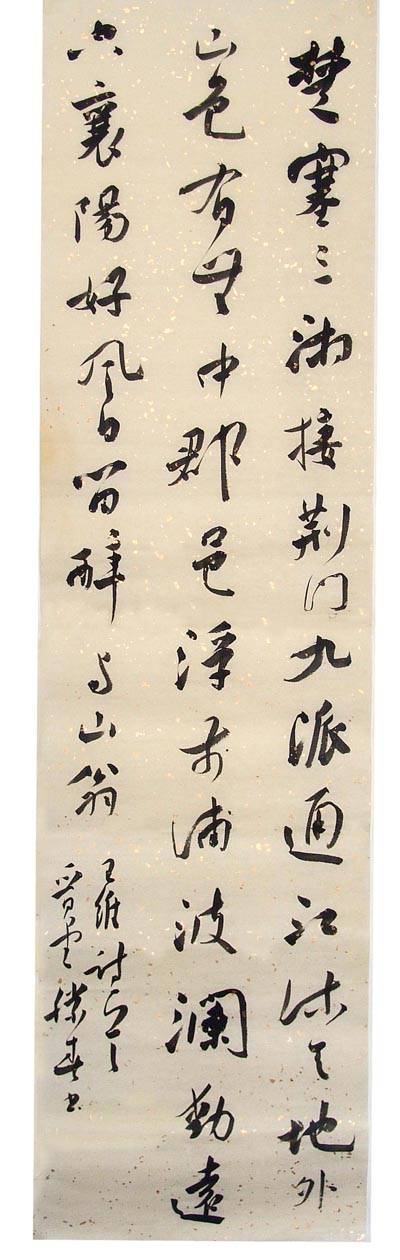 楚塞三湘接荆门九派通江流天地外
山色有無中郡邑浮前浦波瀾動遠
空襄陽好風日留醉与山翁
王維詩
春书